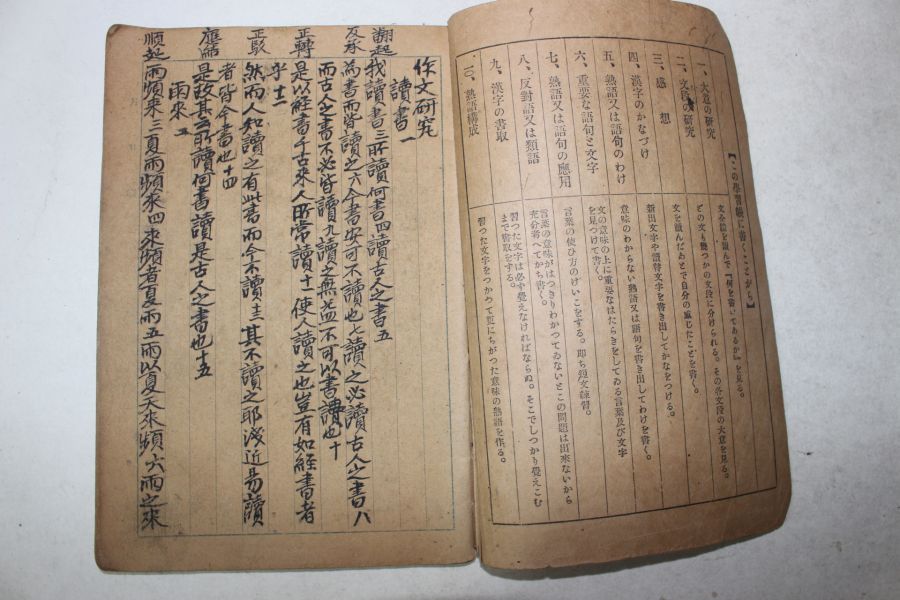 【この學習帳に書くことがら】
一、大意の研究
文全體を讀んで『何を書いてあるか』を見る。
二、文段の研究
どの文も幾つかの文段に分けられる。その各文段の大意を見る。
三、感想
文を讀んだあとで自分の感じたことを書く。
四、漢字のかなづけ
新出文字や讀替文字を書き出してかなをつける。
五、熟語又は語句のわけ
意味のわからない熟語又は語句を書き出してわけを書く。
六、重要な語句と文字
文の意味の上に重要なはたらきをしてゐる言葉及び文字
を見つけて書く。
七、熟語又は語句の應用
言葉の使ひ方のけいこをする。卽ち短文練習。
八、反對語又は類語
言葉の意味がはつきりわかつてゐないとこの問題は出來ないから
充分考へてから書く。
九、漢字の書取
習つた文字は必ず覺えなければならぬ。そこでしつかり覺えこむ
まで書取をする。
一〇、熟語構成
習つた文字をつかつて更にちがつた意味の熟語を作る。
作文硏究
讀書一
飜起 我讀書三所讀何書四讀古人之書五
反承 為書而皆讀之六今書安可不讀也七讀之必讀古人之書八
而古人之書不必皆讀九讀之無益不可以書讀也十
正轉 是以經書千古來人所常讀十一使人讀之也豈有如經書者
乎十二
正設 然而人知讀之有此書而今不讀十三其不讀之耶淺近易讀
者皆今書也十四
應結 是故其所讀何書讀是古人之書也十五
雨來二
順起 雨頻來三夏雨頻來四來頻者夏雨五雨以夏天來頻六雨之來